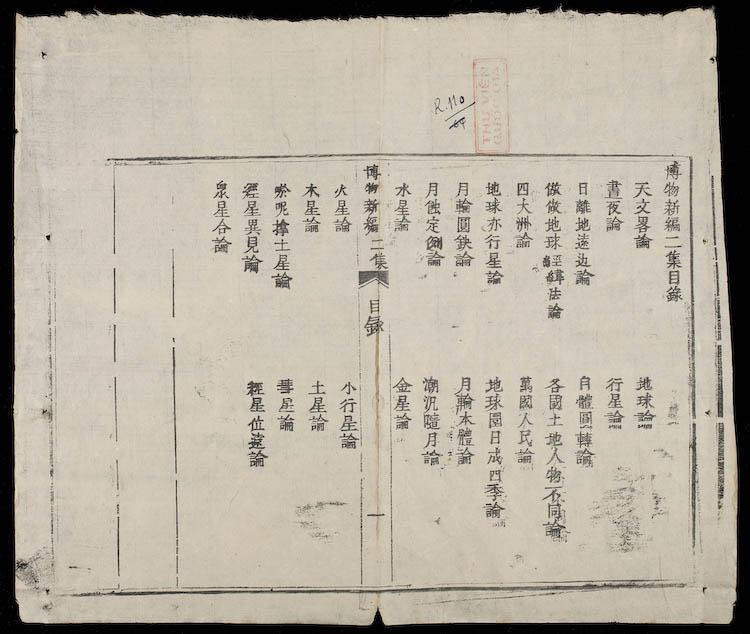 R.110
64
THƯ VIỆN
QUỐC GIA
博物新編二集目錄
天文畧論 地球論
晝夜論 行星論
日離地遠近論 自體圓轉論
做做地球經緯法論 各國土地人物不同論
四大洲論 萬國人民論
地球亦行星論 地球圜日成四季論
月輪圓缺論 月輪本體論
月蝕定例論 潮汛隨月論
水星論 金星論
博物新編 二集 目錄 一
火星論 小行星論
木星論 土星論
嘮呢士星論 彗星論
經星異見論 經星位遠論
眾星合論